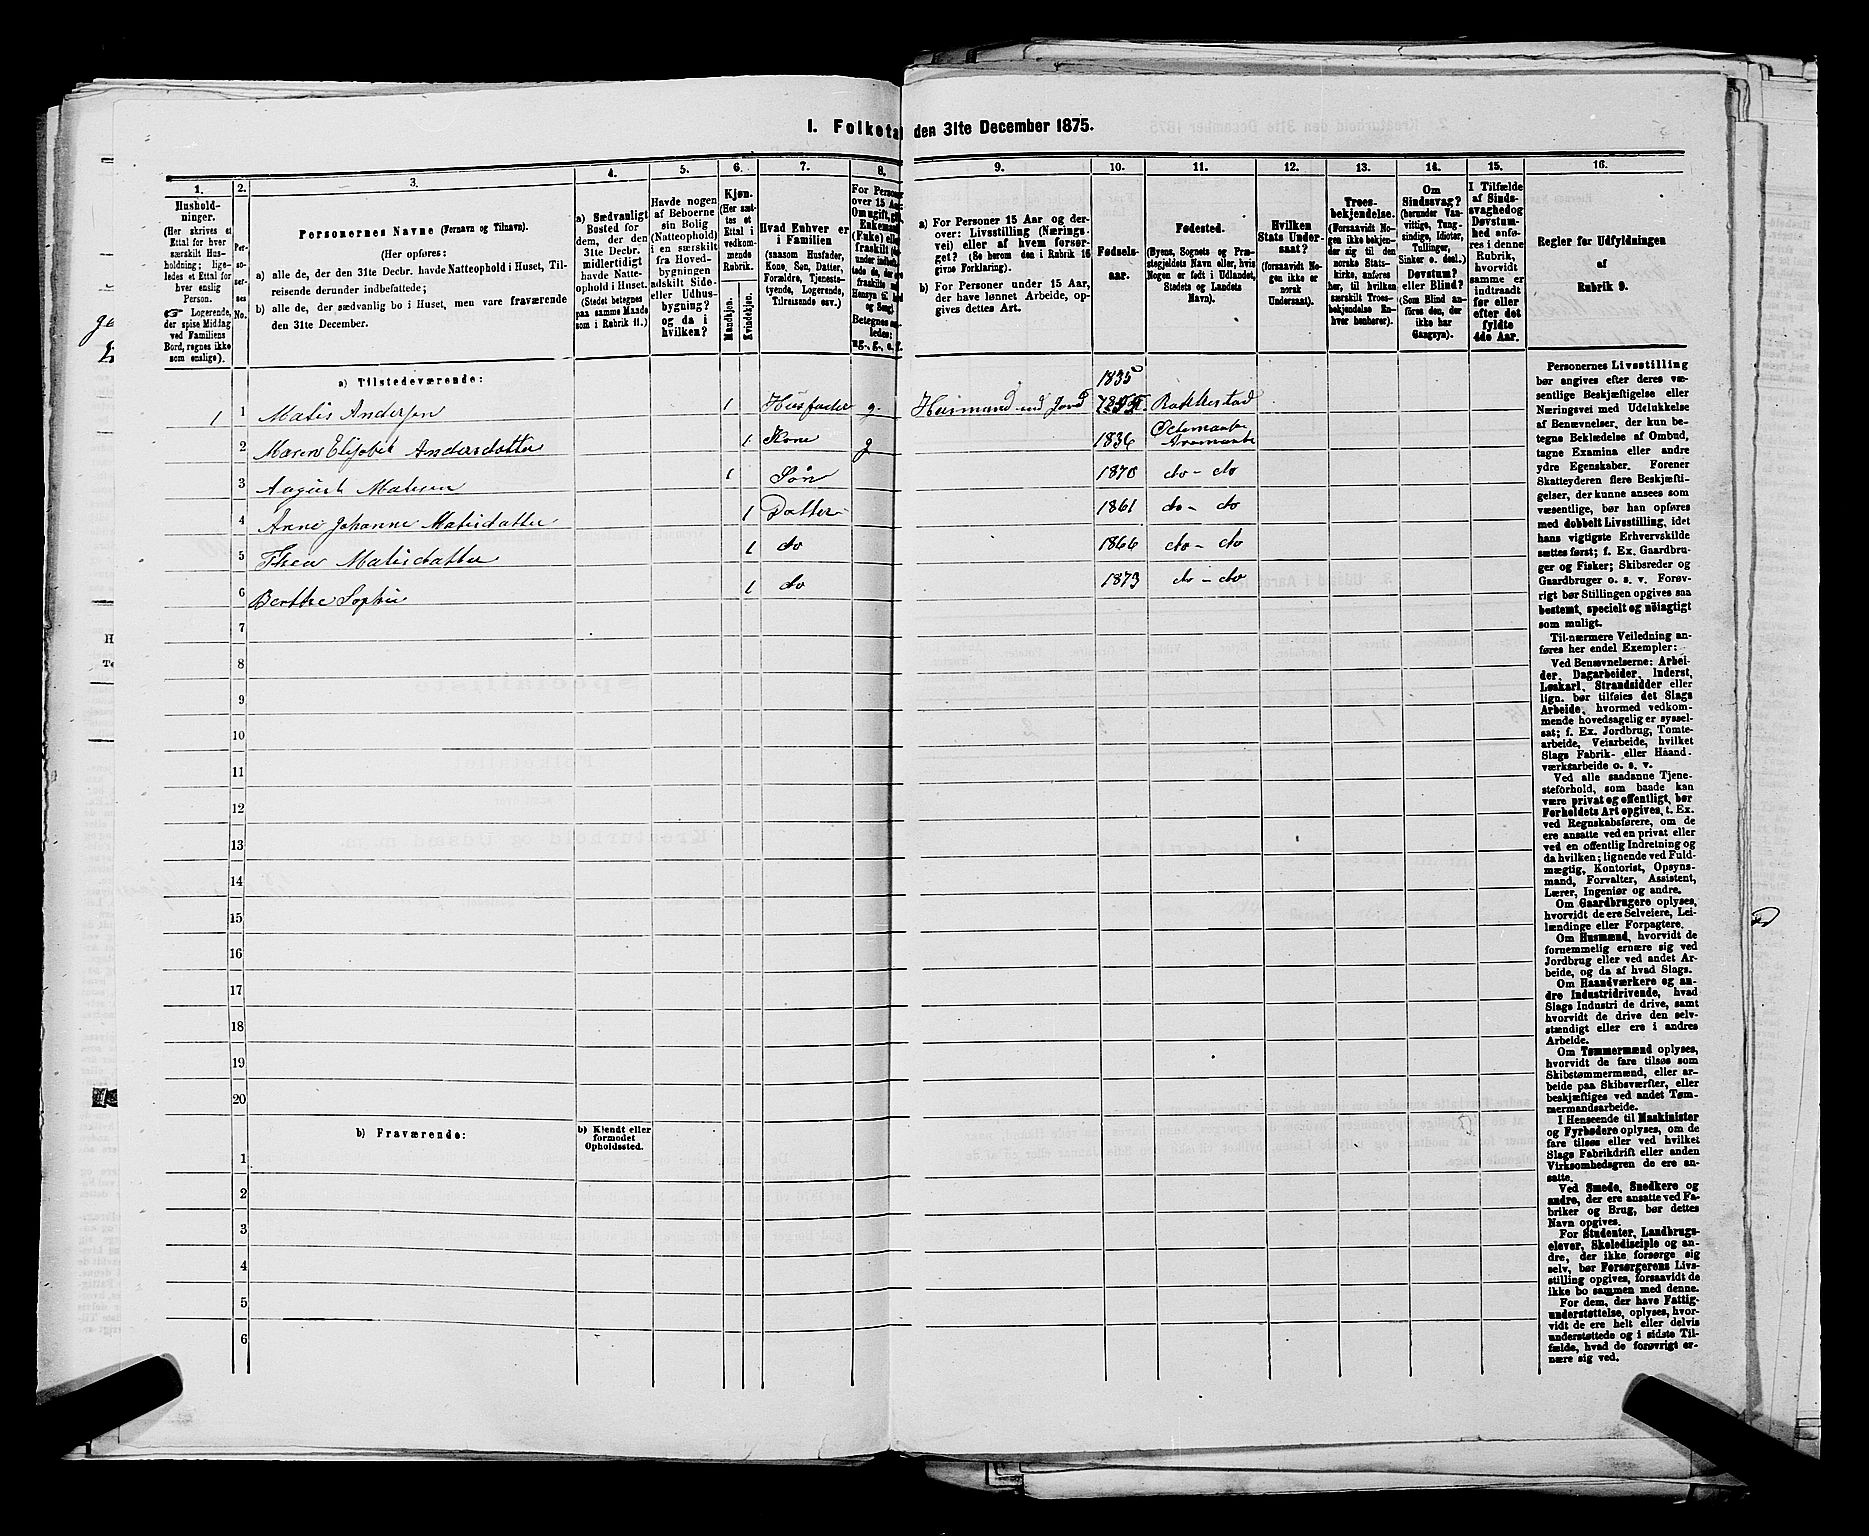 I. Folketal den 31te December 1875.
1.
2.
3.
4.
5.
6.
7.
8.
9.
10.
11.
12.
13.
14.
15.
16.
Hushold-
ninger.
(Her skrives et
Ettal for hver
særskilt Hus-
holdning; lige-
ledes et Ettal for
hver enslig
Person.
☞ Logerende,
der spise Middag
ved Familiens
Bord, regnes ikke
som enslige).
Per-
so-
ner-
nes
No.
Personernes Navne (Fornavn og Tilnavn).
(Her opføres:
a) alle de, der den 31te Decbr. havde Natteophold i Huset, Til-
reisende derunder indbefattede;
b) alle de, der sædvanlig bo i Huset, men vare fraværende
den 31te December.
a) Sædvanligt
Bosted for
dem, der den
31te Decbr.
midlertidigt
havde Natte-
ophold i Huset.
(Stedet betegnes
paa samme Maade
som i Rubrik 11.)
Havde nogen
af Beboerne
sin Bolig
(Natteophold)
i en særskilt
fra Hoved-
bygningen
adskilt Side-
eller Udhus-
bygning?
og da i
hvilken?
Kjøn.
(Her sæt-
tes et
Ettal i
vedkom-
mende
Rubrik.
Mandkjøn.
Kvindekjøn.
Hvad Enhver er
i Familien
(saasom Husfader,
Kone, Søn, Datter,
Forældre, Tjeneste-
tyende, Logerende,
Tilreisende osv.)
For Personer
over 15 Aar:
a) For Personer 15 Aar og der-
over: Livsstilling (Nærings-
vei) eller af hvem forsør-
get? (Se herom den i Rubrik 16
givne Forklaring).
b) For Personer under 15 Aar,
der have lønnet Arbeide, op-
gives dettes Art.
Fødsels-
aar.
Fødested.
(Byens, Sognets og Præ-
stegjeldets Navn eller, hvis
Nogen er født i Udlandet,
Stedets og Landets
Navn).
Hvilken
Stats Under-
saat?
(forsaavidt No-
gen ikke er
norsk
Undersaat).
Troes-
bekjendelse.
(Forsaavidt No-
gen ikke bekjen-
der sig til den
norske Stats-
kirke, anføres
her, til hvilken
særskilt Troes-
bekjendelse En-
hver henhører).
Om
Sindssvag?
(herunder Van-
vittige, Tung-
sindige, Idioter,
Tullinger,
Sinker o. desl.)
Døvstum?
eller Blind?
(Som Blind an-
føres den, der
ikke har
Gangsyn).
I Tilfælde
af Sinds-
svaghed og
Døvstum-
hed anfø-
res i denne
Rubrik,
hvorvidt
samme er
indtraadt
før eller
efter det
fyldte
4de Aar.
Regler for Udfyldningen
af
Rubrik 9.
a) Tilstedeværende:
1835
1 1 Matis Andersen 1 Husfader g. Husmand med Jord Rakkestad
2 Maren Elisabet Andersdatter 1 Kone g 1836
3 August Matisen 1 Søn 1870 do - do
4 Anne Johanne Matisdatter 1 Datter 1861 do - do
5 Thea Matisdatter 1 do 1866 do - do
6 Berthe Sophie 1 do 1873 do - do
7
8
9
10
11
12
13
14
15
16
17
18
19
20
b) Fraværende:
b) Kjendt eller
formodet
Opholdssted.
1
2
3
4
5
6
Personernes Livsstilling
bør angives efter deres væ-
sentlige Beskjæftigelse eller
Næringsvei med Udelukkelse
af Benævnelser, der kun be-
tegne Beklædelse af Ombud,
tagne Examina eller andre
ydre Egenskaber. Forener
Skatteyderen flere Beskjæfti-
gelser, der kunne ansees som
væsentlige, bør han opføres
med dobbelt Livsstilling, idet
hans vigtigste Erhvervskilde
sættes først; f. Ex. Gaardbru-
ger og Fisker; Skibsreder og
Gaardbruger o. s. v. Forøv-
rigt bør Stillingen opgives saa
bestemt, specielt og nöiagtigt
som muligt.
Til nærmere Veiledning an-
føres her endel Exempler:
Ved Benævnelserne: Arbei-
der, Dagarbeider, Inderst,
Løskarl, Strandsidder eller
lign. bør tilføies det Slags
Arbeide, hvormed vedkom-
mende hovedsagelig er syssel-
sat; f. Ex. Jordbrug, Tomte-
arbeide, Veiarbeide, hvilket
Slags Fabrik- eller Haand-
værksarbeide o. s. v.
Ved alle saadanne Tjene-
steforhold, som baade kan
være privat og offentligt, bør
Forholdets Art opgives, t. Ex.
ved Regnskabsførere, om de
ere ansatte ved en privat eller
ved en offentlig Indretning og
da hvilken; lignende ved Fuld-
mægtig, Kontorist, Opsyns-
mand, Forvalter, Assistent,
Lærer, Ingeniør og andre.
Om Gaardbrugere oplyses,
hvorvidt de ere Selveiere, Lei-
lændinge eller Forpagtere.
Om Husmænd, hvorvidt de
fornemmelig ernære sig ved
Jordbrug eller ved andet Ar-
beide, og da af hvad Slags.
Om Haandværkere og an-
dre Industridrivende, hvad
Slags Industri de drive, samt
hvorvidt de drive den selv-
stændigt eller ere i andres
Arbeide.
Om Tømmermænd oplyses,
hvorvidt de fare tilsøs som
Skibstømmermænd, eller ar-
beide paa Skibsværfter, eller
beskjæftiges ved andet Tøm-
mermandsarbeide.
I Henseende til Maskinister
og Fyrbødere oplyses, om de
fare tilsøs eller ved hvilket
Slags Fabrikdrift eller anden
Virksomhedsgren de ere an-
satte.
Ved Smede, Snedkere og
andre, der ere ansatte ved Fa-
briker og Brug, bør dettes
Navn opgives.
For Studenter, Landbrugs-
elever, Skoledisciple og an-
dre, der ikke forsørge sig
selv, bør Forsørgerens Livs-
stilling opgives, forsaavidt de
ikke bo sammen med denne.
For dem, der have Fattig-
understøttelse, oplyses, hvor-
vidt de ere helt eller delvis
understøttede og i sidste Til-
fælde, hvad de forøvrigt er-
nære sig ved.